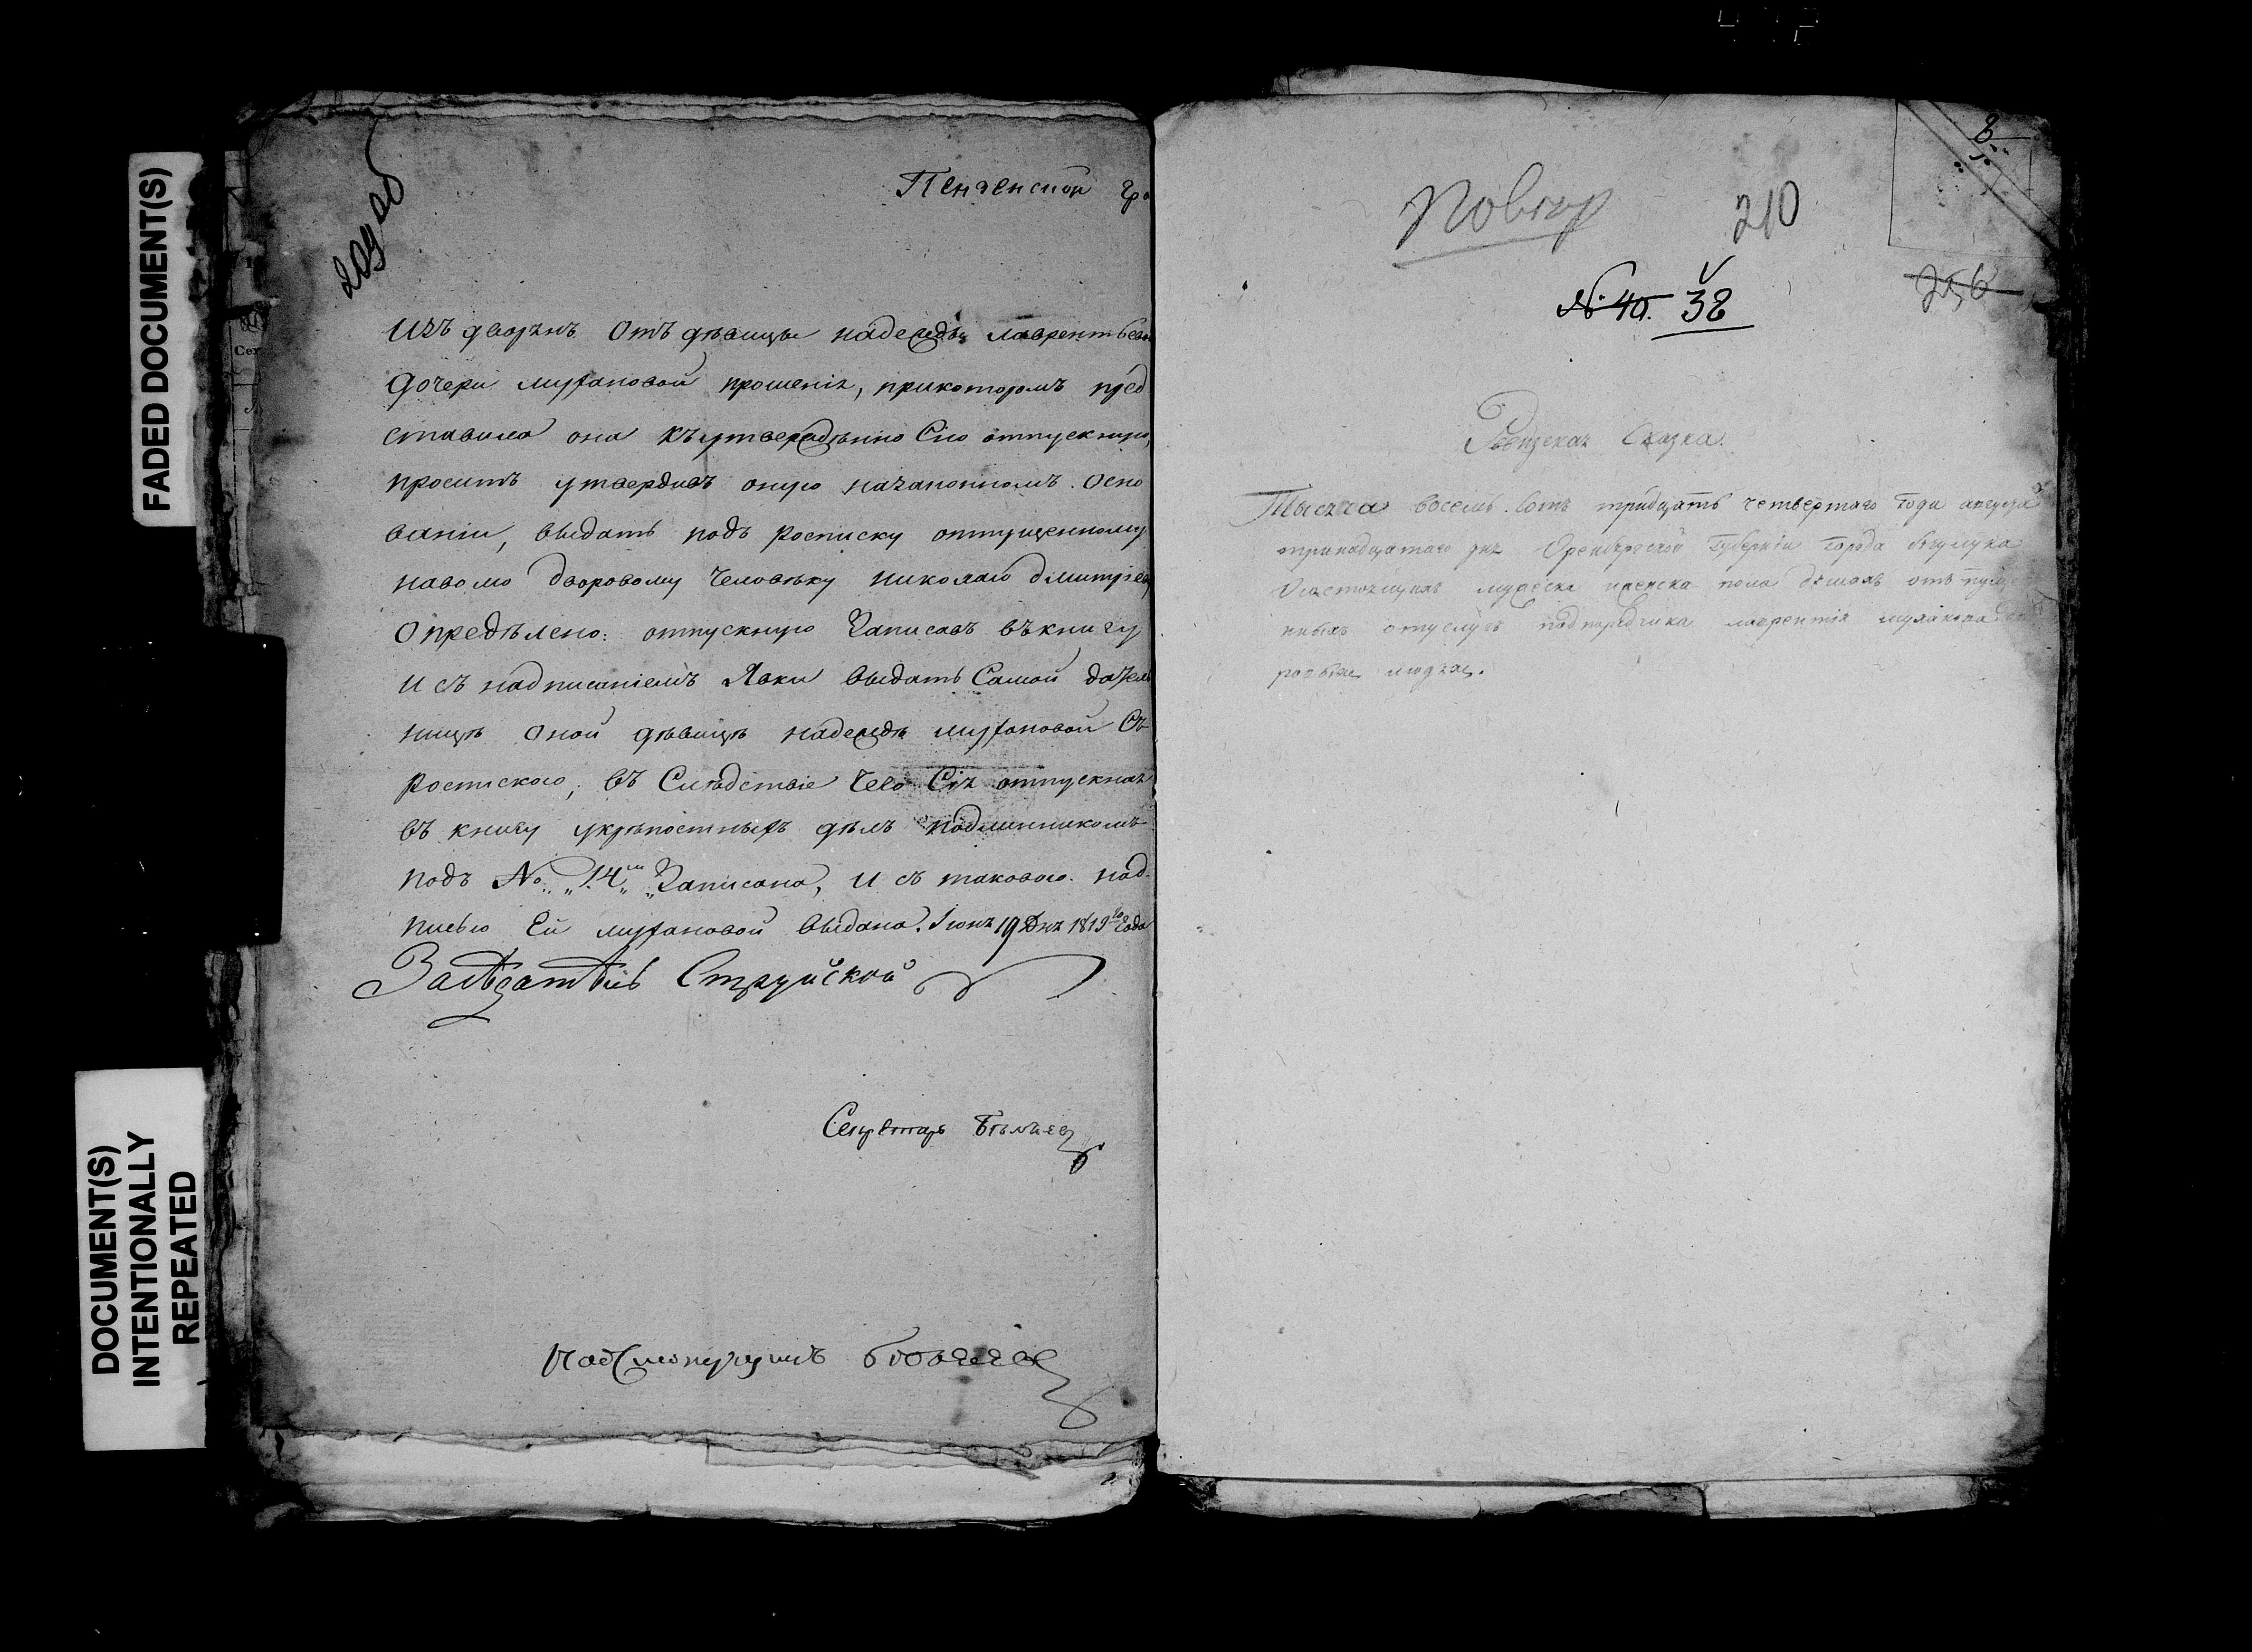 FADED DOCUMENT(S)
DOCUMENT(S)
INTENTIONALLY
REPEATED
209 об
Пензенской гра
Изъ дворянъ отъ дѣвицы надежды лаврентьевой
дочери мухановой прошенія, прикоторомъ пред
ставила она къутвержденію Сію отпускную,
проситъ утвердивъ оную назаконномъ осно
ваніи, выдать подъ росписку отпущенному
наволю дворовому человѣку николаю дмитріеву
Опредѣлено: отпускную Записавъ въкнигу
и съ надписаніемъ Явки выдать Самой
ницѣ оной дѣвицѣ надеждѣ мухановой Съ
роспискою, въ Слѣдствіе чего Сія отпускная
въ книгу укрѣпостныхъ дѣлъ подлинникомъ
подъ № „14„ Записана, и съ таковою над
писью Ей мухановой выдана. Іюня 19 Дня 1819го Года
Засѣдатель Струйской
Секретарь
8
Повтор 210
№ 40. 38
256
Ревизская Сказка.
Тысяча восемь сотъ тридцать четвертаго года
тринадцатаго дня Оренбергской Губерніи города бугулука
Осостоящихъ мужеска иженска пола душахъ отъ
ныхъ подпорудчика лаврентія муханова
людяхъ.